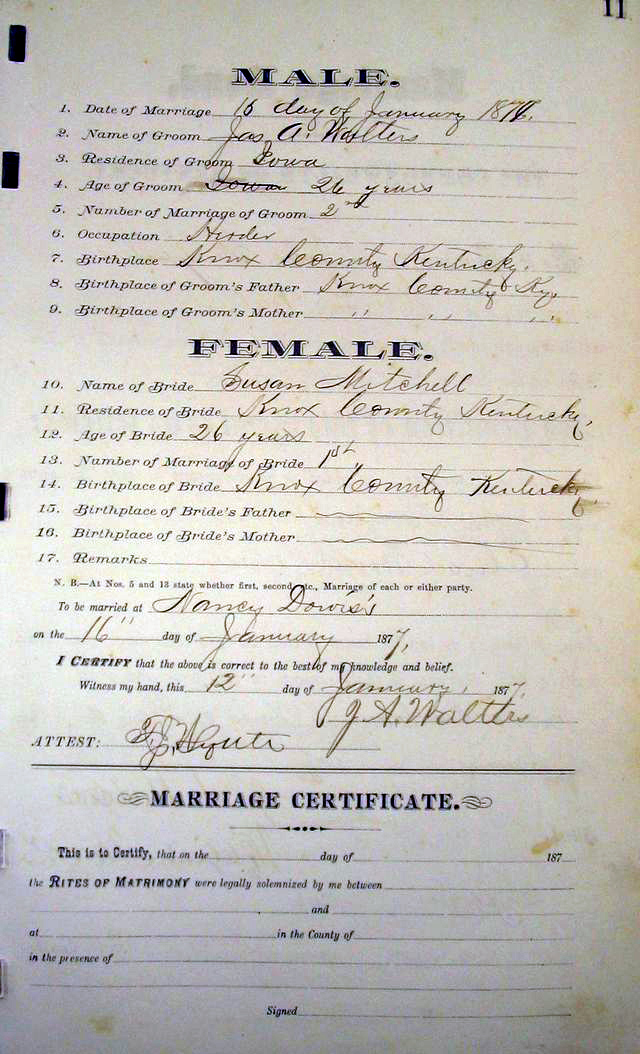 11
MALE.
1. Date of Marriage 16 day of January 1877.
2. Name of Groom Jas A. Walters
3. Residence of Groom Iowa
4. Age of Groom Iowa 26 years
5. Number of Marriage of Groom 2nd
6. Occupation Herder
7. Birthplace Knox County Kentucky.
8. Birthplace of Groom's Father Knox County Ky.
9. Birthplace of Groom's Mother " " "
FEMALE.
10. Name of Bride Susan Mitchell
11. Residence of Bride Knox County Kentucky,
12. Age of Bride 26 years
13. Number of Marriage of Bride 1st "
14. Birthplace of Bride Knox County Kentucky.
15. Birthplace of Bride's Father
16. Birthplace of Bride's Mother
17. Remarks
N. B.—At Nos. 5 and 13 state whether first, second, etc., Marriage of each or either party.
To be married at Nancy Dowis's
on the 16" day of January 1877,
I CERTIFY that the above is correct to the best of my knowledge and belief.
Witness my hand, this 12" day of January, 1877.
J. A. Walters
ATTEST:
MARRIAGE CERTIFICATE.
This is to Certify, that on the day of 187
the RITES OF MATRIMONY were legally solemnized by me between
and
at in the County of
in the presence of
Signed